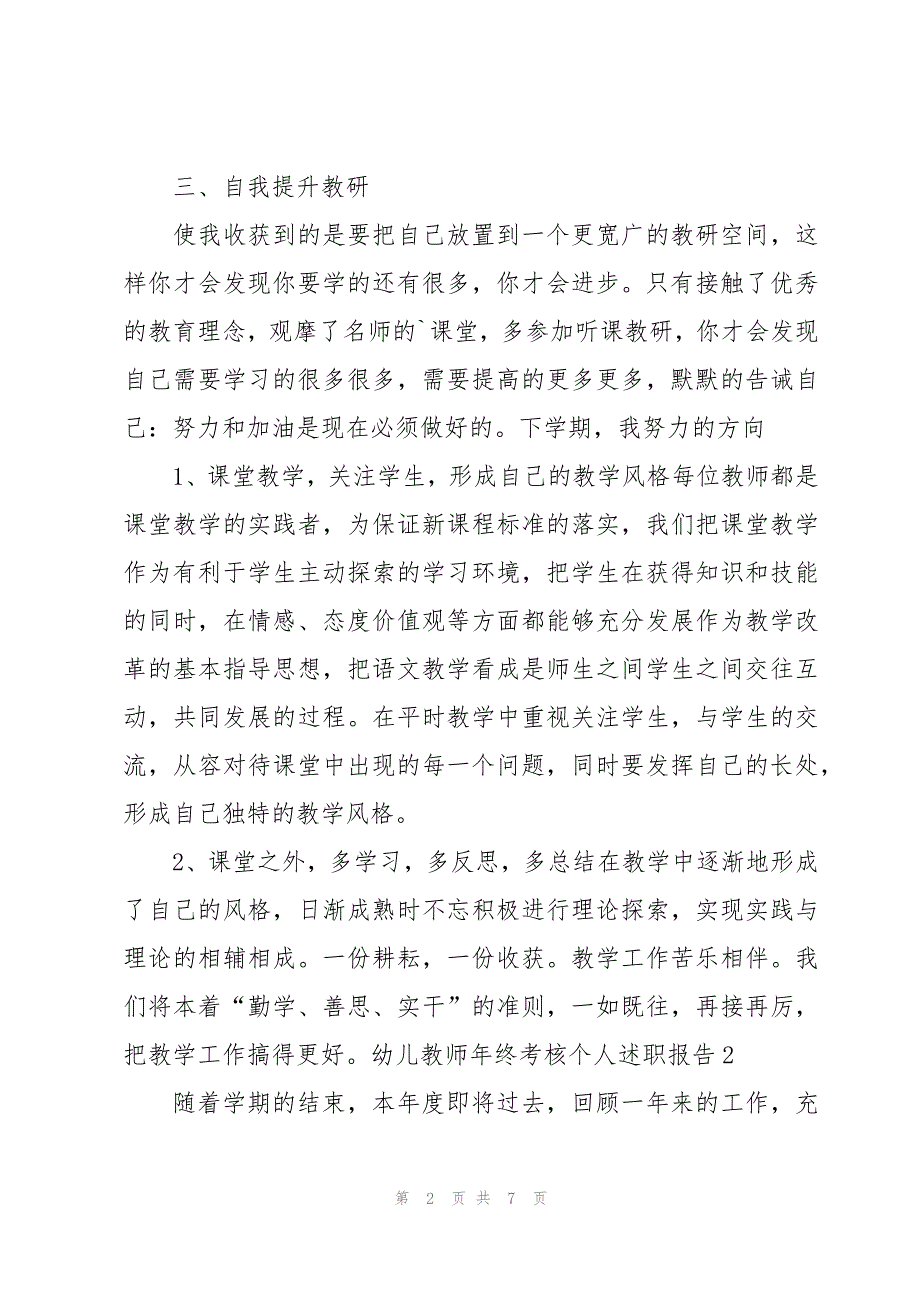 三、自我提升教研
使我收获到的是要把自己放置到一个更宽广的教研空间，这
样你才会发现你要学的还有很多，你才会进步。只有接触了优秀
的教育理念，观摩了名师的`课堂，多参加听课教研，你才会发现
自己需要学习的很多很多，需要提高的更多更多，默默的告诫自
己：努力和加油是现在必须做好的。下学期，我努力的方向
1、课堂教学，关注学生，形成自己的教学风格每位教师都是
课堂教学的实践者，为保证新课程标准的落实，我们把课堂教学
作为有利于学生主动探索的学习环境，把学生在获得知识和技能
的同时，在情感、态度价值观等方面都能够充分发展作为教学改
革的基本指导思想，把语文教学看成是师生之间学生之间交往互
动，共同发展的过程。在平时教学中重视关注学生，与学生的交
流，从容对待课堂中出现的每一个问题，同时要发挥自己的长处，
形成自己独特的教学风格。
2、课堂之外，多学习，多反思，多总结在教学中逐渐地形成
了自己的风格，日渐成熟时不忘积极进行理论探索，实现实践与
理论的相辅相成。一份耕耘，一份收获。教学工作苦乐相伴。我
们将本着“勤学、善思、实干”的准则，一如既往，再接再厉，
把教学工作搞得更好。幼儿教师年终考核个人述职报告2
随着学期的结束，本年度即将过去，回顾一年来的工作，充
第 2 页 共 7 页